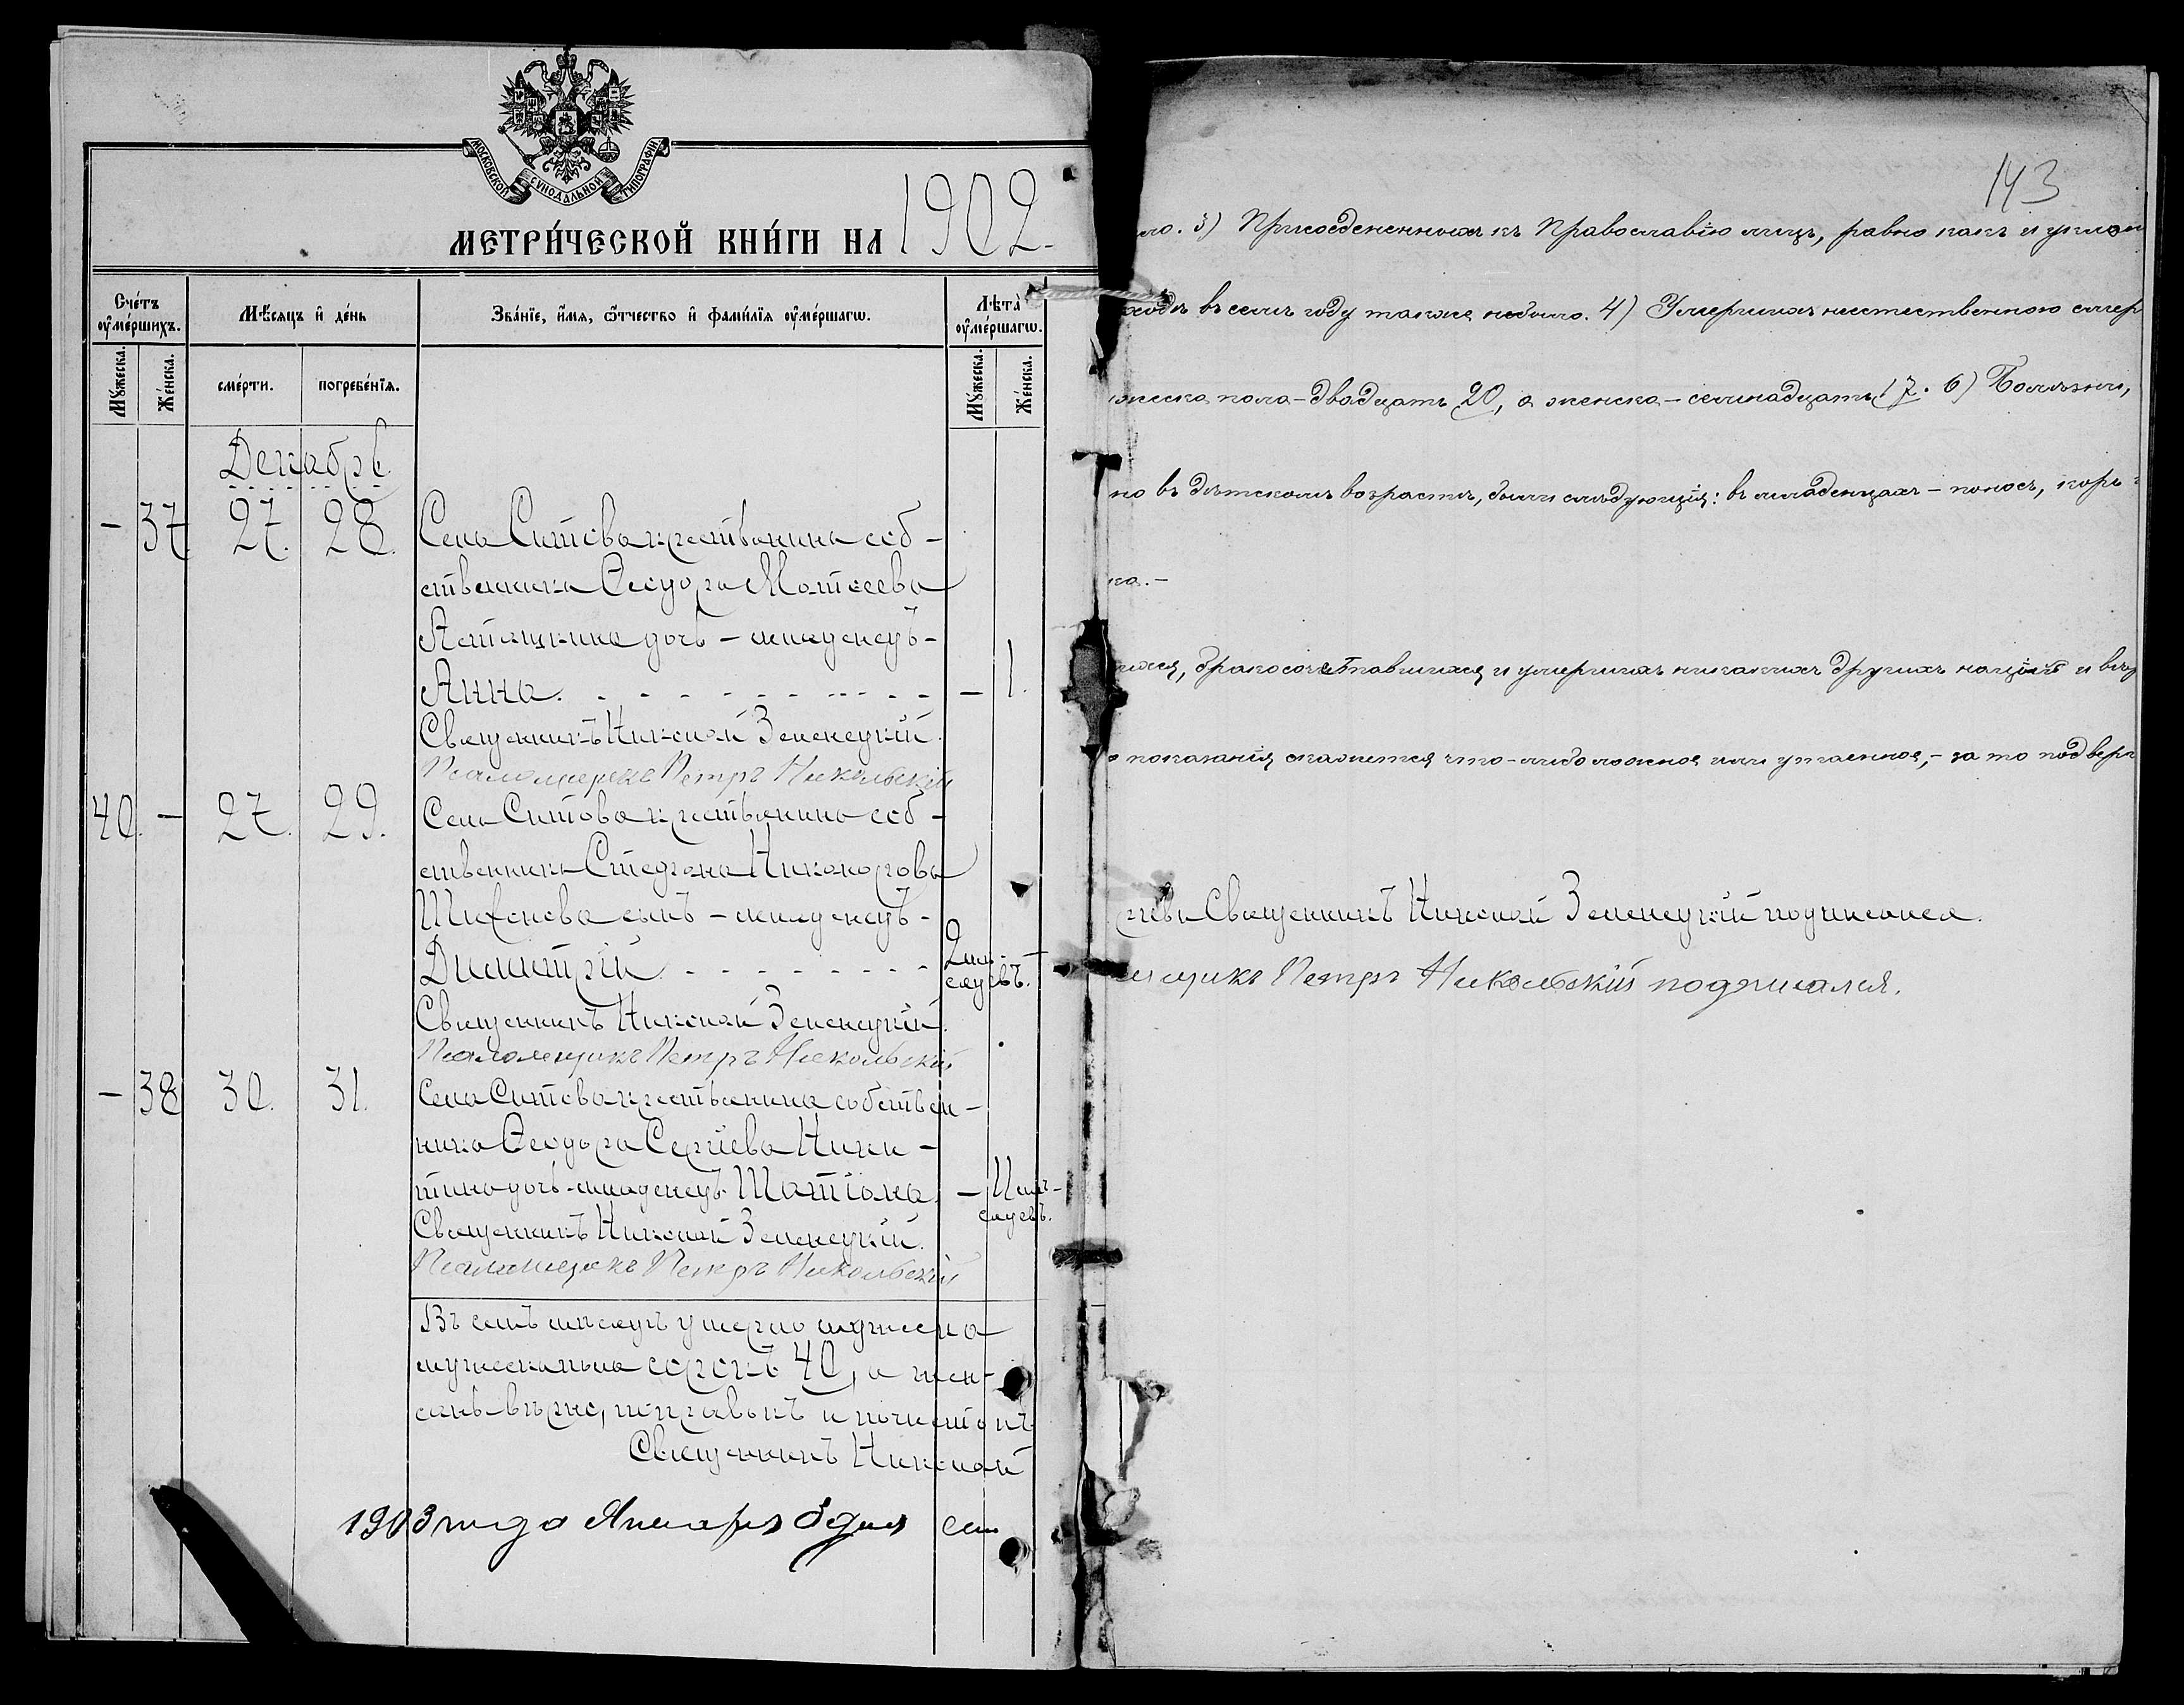 МОСКОВСКОЙ СѴНОДАЛЬНОЙ ТИПОГРАФІИ
МЕТРИ́ЧЕСКОЙ КНИ́ГИ НА 1902.
Сче́тъ ᲂу҆ме́ршихъ.
Мѣ́сяцъ и҆ де́нь
Зва́нїе, и҆́мя, ѻ҆́тчество и҆ фами́лїя ᲂу҆ме́ршагѡ.
Лѣ́та ᲂу҆ме́ршагѡ.
Мꙋ́жеска.
Же́нска.
сме́рти.
погребе́нїя.
Мꙋ́жеска.
Же́нска.
Декабрь.
- 37. 27. 28. Села Ситова крестьянина соб-
ственника Ѳеодора Матѳеева
Асташкина дочь - младенецъ -
Анна. - 1.
Священникъ Николай Зеленецкій.
Псаломщикъ Петръ Никольскій
40. - 27. 29. Села Ситова крестьянина соб-
ственника Стефана Никанорова
Тихонова сынъ - младенецъ -
Димитрій. 2 мѣ- -
сяцевъ.
Священникъ Николай Зеленецкій.
Псаломщикъ Петръ Никольскій
- 38 30. 31. Села Ситова крестьянина собствен-
ника Ѳеодора Сергіева Ники-
тина дочь - младенецъ Татіана. - 11 мѣ-
сяцевъ.
Священникъ Николай Зеленецкій.
Псаломщикъ Петръ Никольскій
Въ семъ мѣсяцѣ умерло мужеска
мужеска пола сорокъ 40, а жен-
вѣрно, поправокъ и почистокъ
Священникъ Николай
1903 года Января 3 дня сі
143
ло. 3) Присоедененныхъ къ Православію лицъ, равно какъ и уклон
ходѣ въ семъ году также небыло. 4) Умершихъ неестественною смер
жеска пола - двадцать 20, а женска - семнадцать 17. 6) Болѣзни,
но въ дѣтскомъ возрастѣ, были слѣдующія: въ младенцахъ - поносъ, корь
ка. -
шихся, бракосочетавшихся и умершихъ никакихъ другихъ націй и вѣр
показанія окажется что-либо ложное или утаенное, - за то подверг
Священникъ Николай Зеленецкій подписался.
мщикъ Петръ Никольскій подписался.